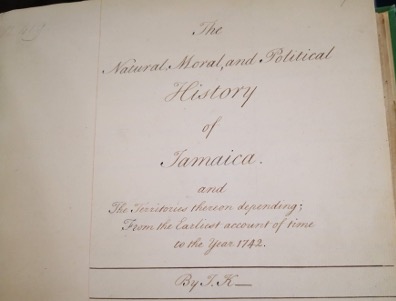 The
Natural, Moral, and Political
History
of
Jamaica.
and
The Territories thereon depending;
From the Earliest account of time
to the Year 1742.
By J. K—